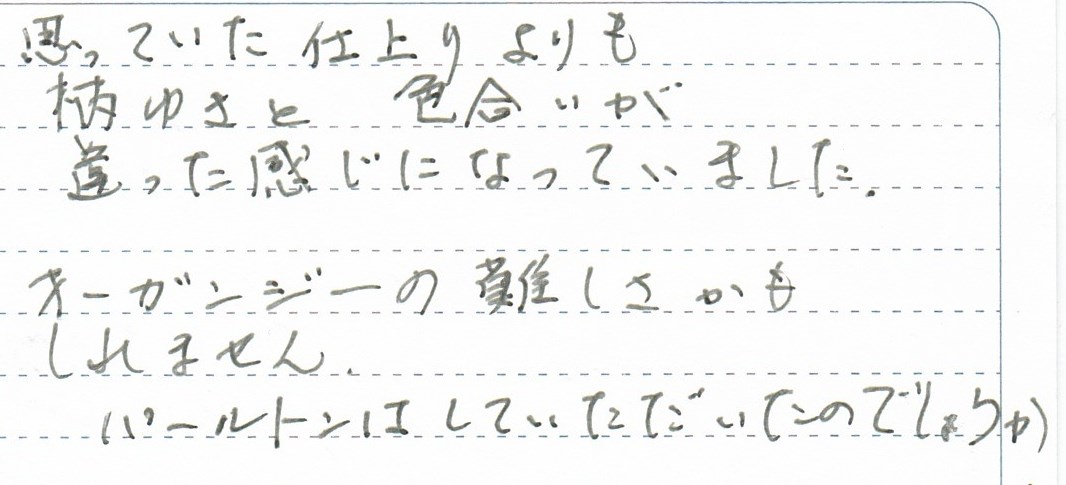 思っていた仕上りよりも
柄ゆきと 色合いが
違った感じになっていました.
オーガンジーの難しさかも
しれません.
パールトンはしていただいたのでしょうか